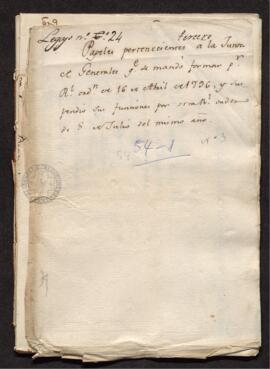 Legajo nº 24 tercero
Papeles pertenecientes a la Junta
de Generales qe. se mandó formar pr.
Rl. ordn. de 16 de Abril de 1796, y sus
pendió sus funciones por otra Rl. orden
de 8 de Julio del mismo año.
54-1
nº 3